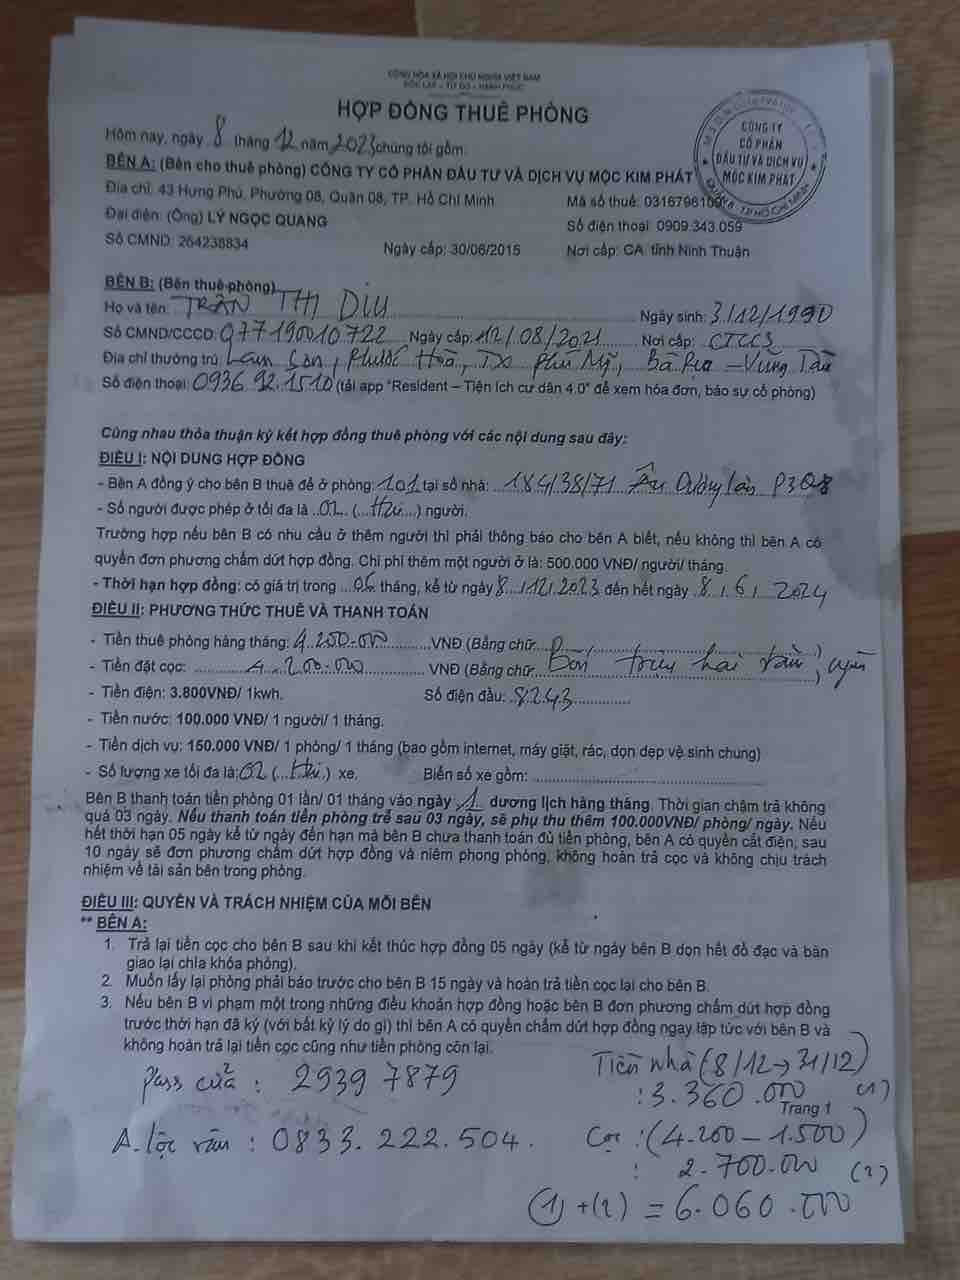 CỘNG HÒA XÃ HỘI CHỦ NGHĨA VIỆT NAM
ĐỘC LẬP – TỰ DO – HẠNH PHÚC
HỢP ĐỒNG THUÊ PHÒNG
CÔNG TY
CỔ PHẦN
ĐẦU TƯ VÀ DỊCH VỤ
MỘC KIM PHÁT
QUẬN 8 - TP. HỒ CHÍ MINH
Hôm nay, ngày 8 tháng 12 năm 2023 chúng tôi gồm:
BÊN A: (Bên cho thuê phòng) CÔNG TY CỔ PHẦN ĐẦU TƯ VÀ DỊCH VỤ MỘC KIM PHÁT
Địa chỉ: 43 Hưng Phú, Phường 08, Quận 08, TP. Hồ Chí Minh Mã số thuế: 0316798160
Đại diện: (Ông) LÝ NGỌC QUANG Số điện thoại: 0909.343.059
Số CMND: 264238834 Ngày cấp: 30/06/2015 Nơi cấp: CA tỉnh Ninh Thuận
BÊN B: (Bên thuê phòng)
Họ và tên: TRẦN THỊ DIU Ngày sinh: 3/12/1990
Số CMND/CCCD: 077190010722 Ngày cấp: 12/08/2021 Nơi cấp: CTCCS
Địa chỉ thường trú: Lam Sơn, Phước Hoà, TX Phú Mỹ, Bà Rịa – Vũng Tàu
Số điện thoại: 0936.92.1510 (tải app "Resident – Tiện ích cư dân 4.0" để xem hóa đơn, báo sự cố phòng)
Cùng nhau thỏa thuận ký kết hợp đồng thuê phòng với các nội dung sau đây:
ĐIỀU I: NỘI DUNG HỢP ĐỒNG
- Bên A đồng ý cho bên B thuê để ở phòng: 101 tại số nhà: 184/38/71 Âu Dương Lân P3Q8
- Số người được phép ở tối đa là 02 (Hai) người.
Trường hợp nếu bên B có nhu cầu ở thêm người thì phải thông báo cho bên A biết, nếu không thì bên A có
quyền đơn phương chấm dứt hợp đồng. Chi phí thêm một người ở là: 500.000 VNĐ/ người/ tháng.
- Thời hạn hợp đồng: có giá trị trong 06 tháng, kể từ ngày 8/12/2023 đến hết ngày 8/6/2024
ĐIỀU II: PHƯƠNG THỨC THUÊ VÀ THANH TOÁN
- Tiền thuê phòng hàng tháng: 4.200.000 VNĐ (Bằng chữ )
- Tiền đặt cọc: 4.200.000 VNĐ (Bằng chữ Bốn triệu hai trăm ngàn)
- Tiền điện: 3.800VNĐ/ 1kwh. Số điện đầu: 8243
- Tiền nước: 100.000 VNĐ/ 1 người/ 1 tháng.
- Tiền dịch vụ: 150.000 VNĐ/ 1 phòng/ 1 tháng (bao gồm internet, máy giặt, rác, dọn dẹp vệ sinh chung)
- Số lượng xe tối đa là: 02 (Hai) xe. Biển số xe gồm:
Bên B thanh toán tiền phòng 01 lần/ 01 tháng vào ngày 1 dương lịch hàng tháng. Thời gian chậm trả không
quá 03 ngày. Nếu thanh toán tiền phòng trễ sau 03 ngày, sẽ phụ thu thêm 100.000VNĐ/ phòng/ ngày. Nếu
hết thời hạn 05 ngày kể từ ngày đến hạn mà bên B chưa thanh toán đủ tiền phòng, bên A có quyền cắt điện, sau
10 ngày sẽ đơn phương chấm dứt hợp đồng và niêm phong phòng, không hoàn trả cọc và không chịu trách
nhiệm về tài sản bên trong phòng.
ĐIỀU III: QUYỀN VÀ TRÁCH NHIỆM CỦA MỖI BÊN
** BÊN A:
1. Trả lại tiền cọc cho bên B sau khi kết thúc hợp đồng 05 ngày (kể từ ngày bên B dọn hết đồ đạc và bàn
giao lại chìa khóa phòng).
2. Muốn lấy lại phòng phải báo trước cho bên B 15 ngày và hoàn trả tiền cọc lại cho bên B.
3. Nếu bên B vi phạm một trong những điều khoản hợp đồng hoặc bên B đơn phương chấm dứt hợp đồng
trước thời hạn đã ký (với bất kỳ lý do gì) thì bên A có quyền chấm dứt hợp đồng ngay lập tức với bên B và
không hoàn trả lại tiền cọc cũng như tiền phòng còn lại.
Tiền nhà (8/12→31/12)
Pass cửa : 2939 7879
: 3.360.000 (1)
Trang 1
A. Lộc vân : 0833.222.504.
Cọc : (4.200 – 1.500)
: 2.700.000 (2)
(1) + (2) = 6.060.000